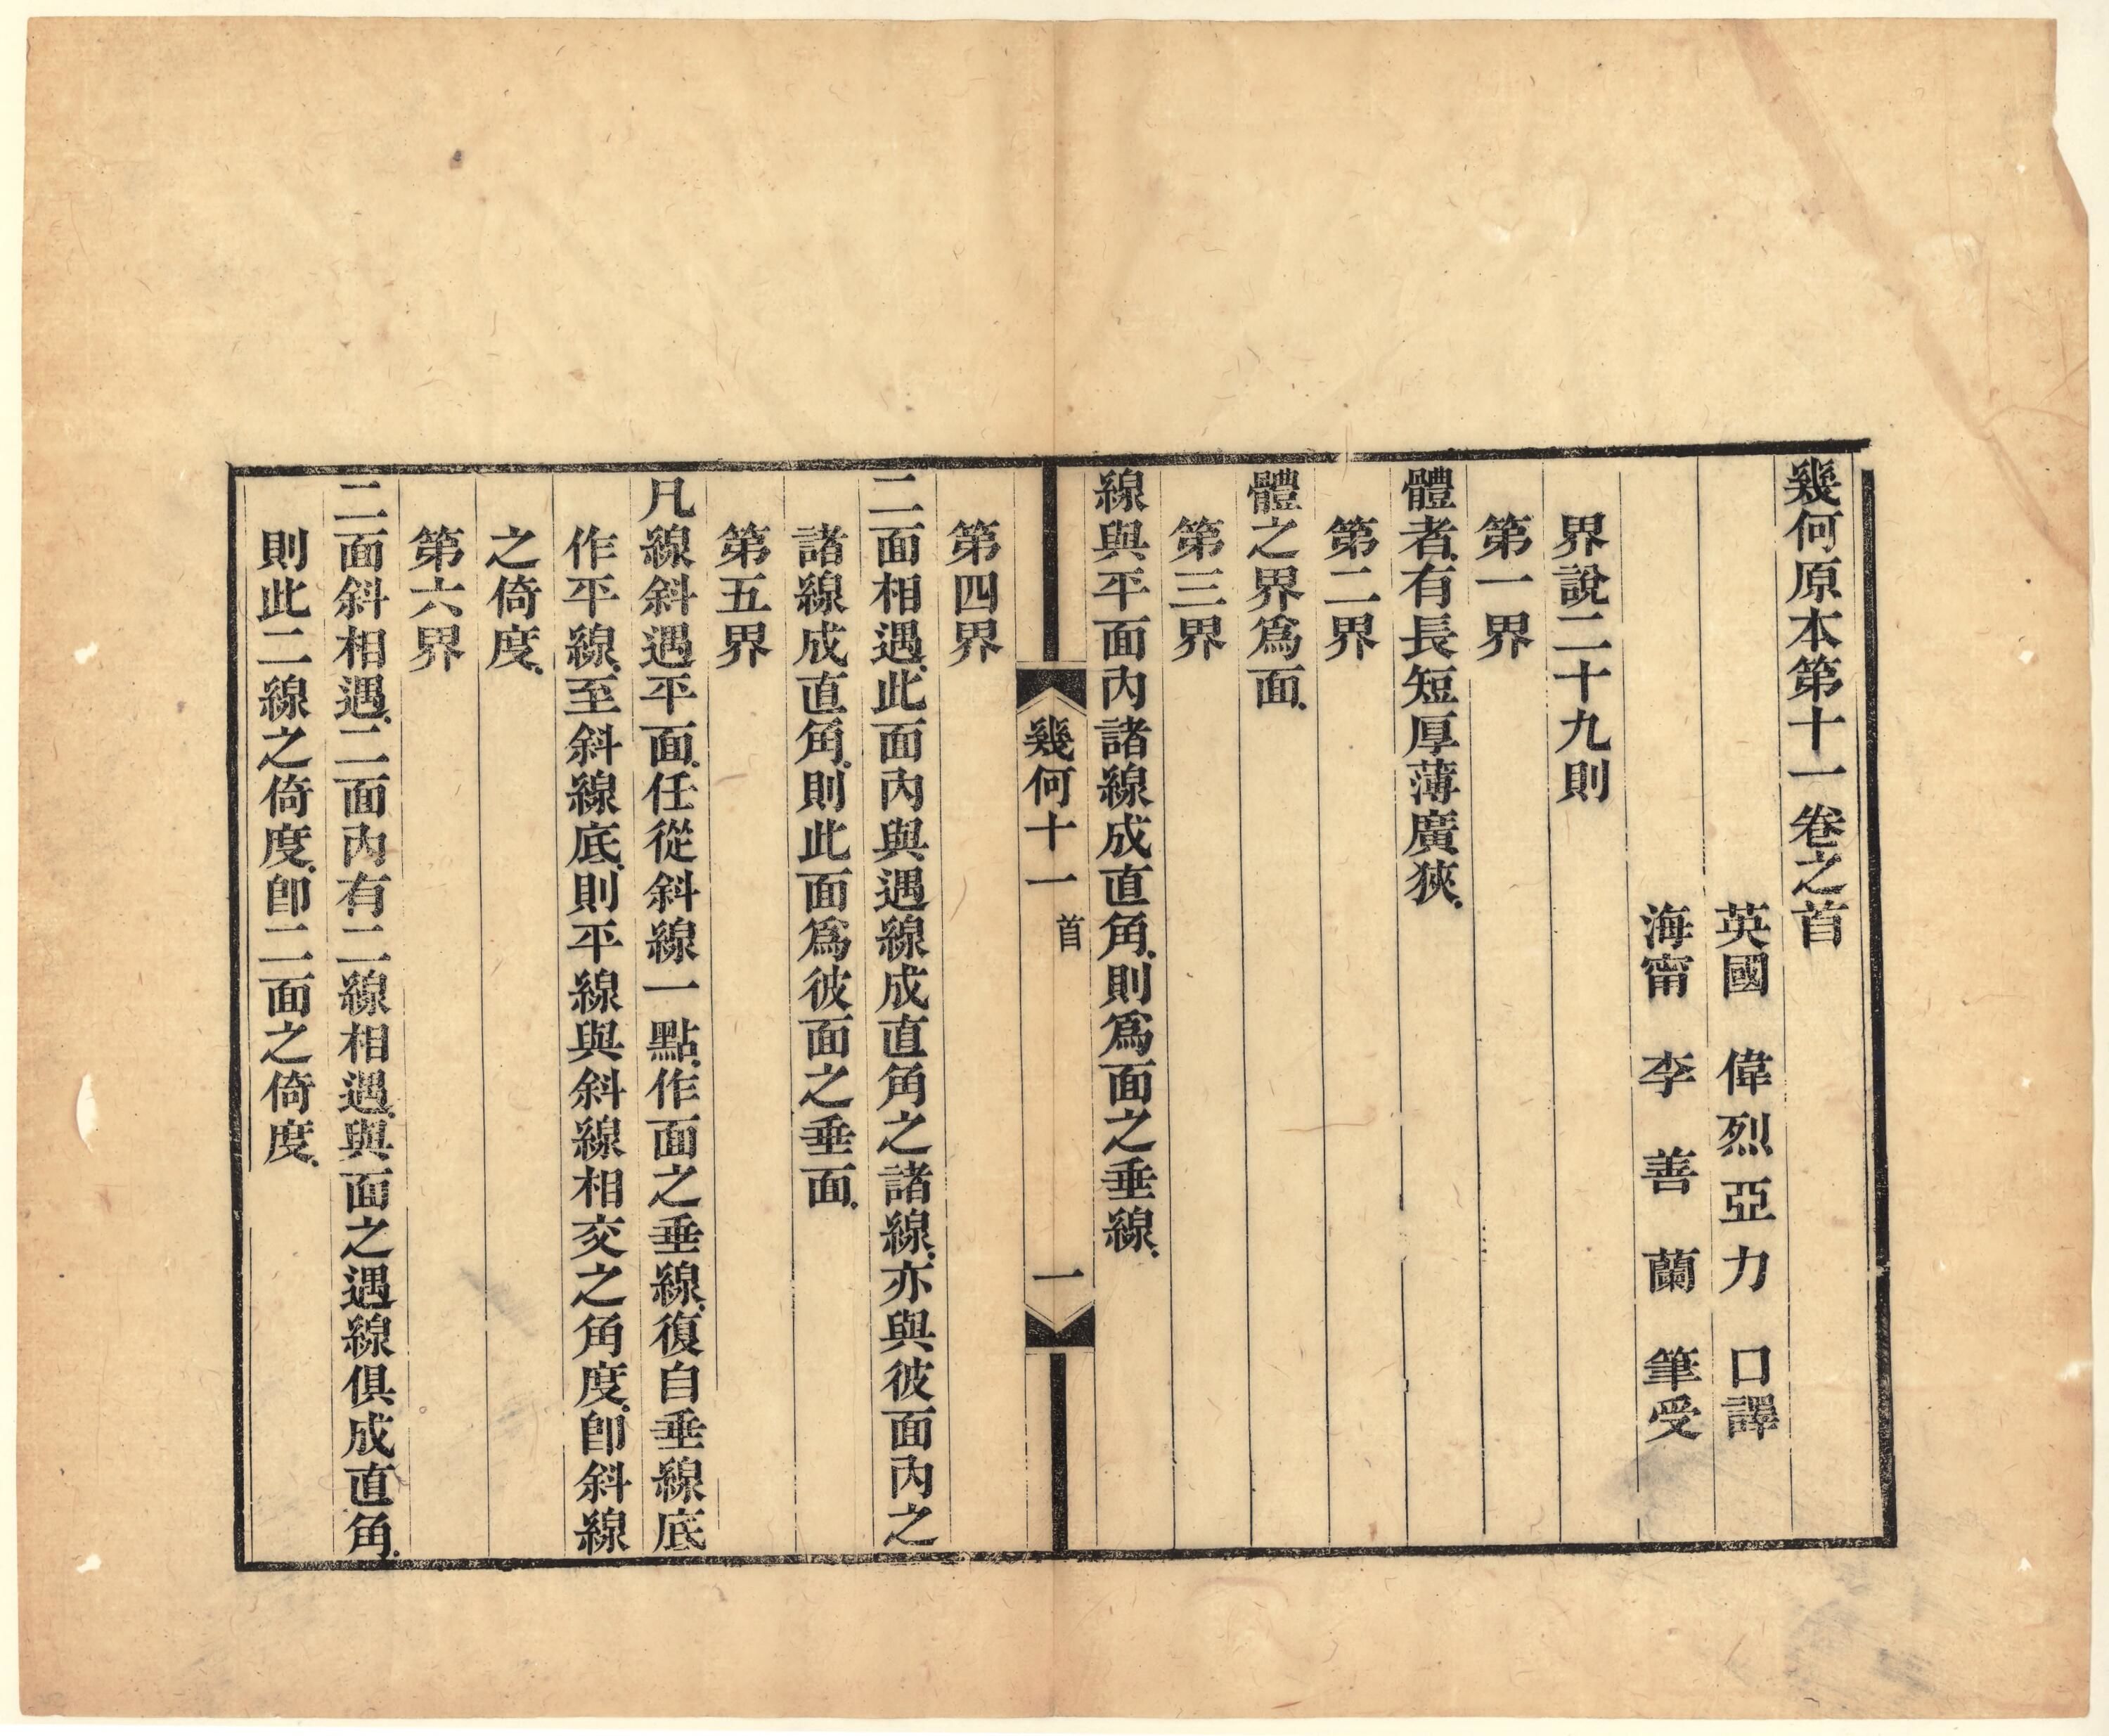 幾何原本第十一卷之首
英國 偉烈亞力 口譯
海甯 李善蘭 筆受
界說二十九則
第一界
體者.有長短厚薄廣狹.
第二界
體之界爲面.
第三界
線與平面內諸線成直角.則爲面之垂線.
幾何十一 首 一
第四界
二面相遇.此面內與遇線成直角之諸線.亦與彼面內之
諸線成直角.則此面爲彼面之垂面.
第五界
凡線斜遇平面.任從斜線一點.作面之垂線.復自垂線底
作平線.至斜線底.則平線與斜線相交之角度.卽斜線
之倚度.
第六界
二面斜相遇.二面內有二線相遇.與面之遇線俱成直角.
則此二線之倚度.卽二面之倚度.